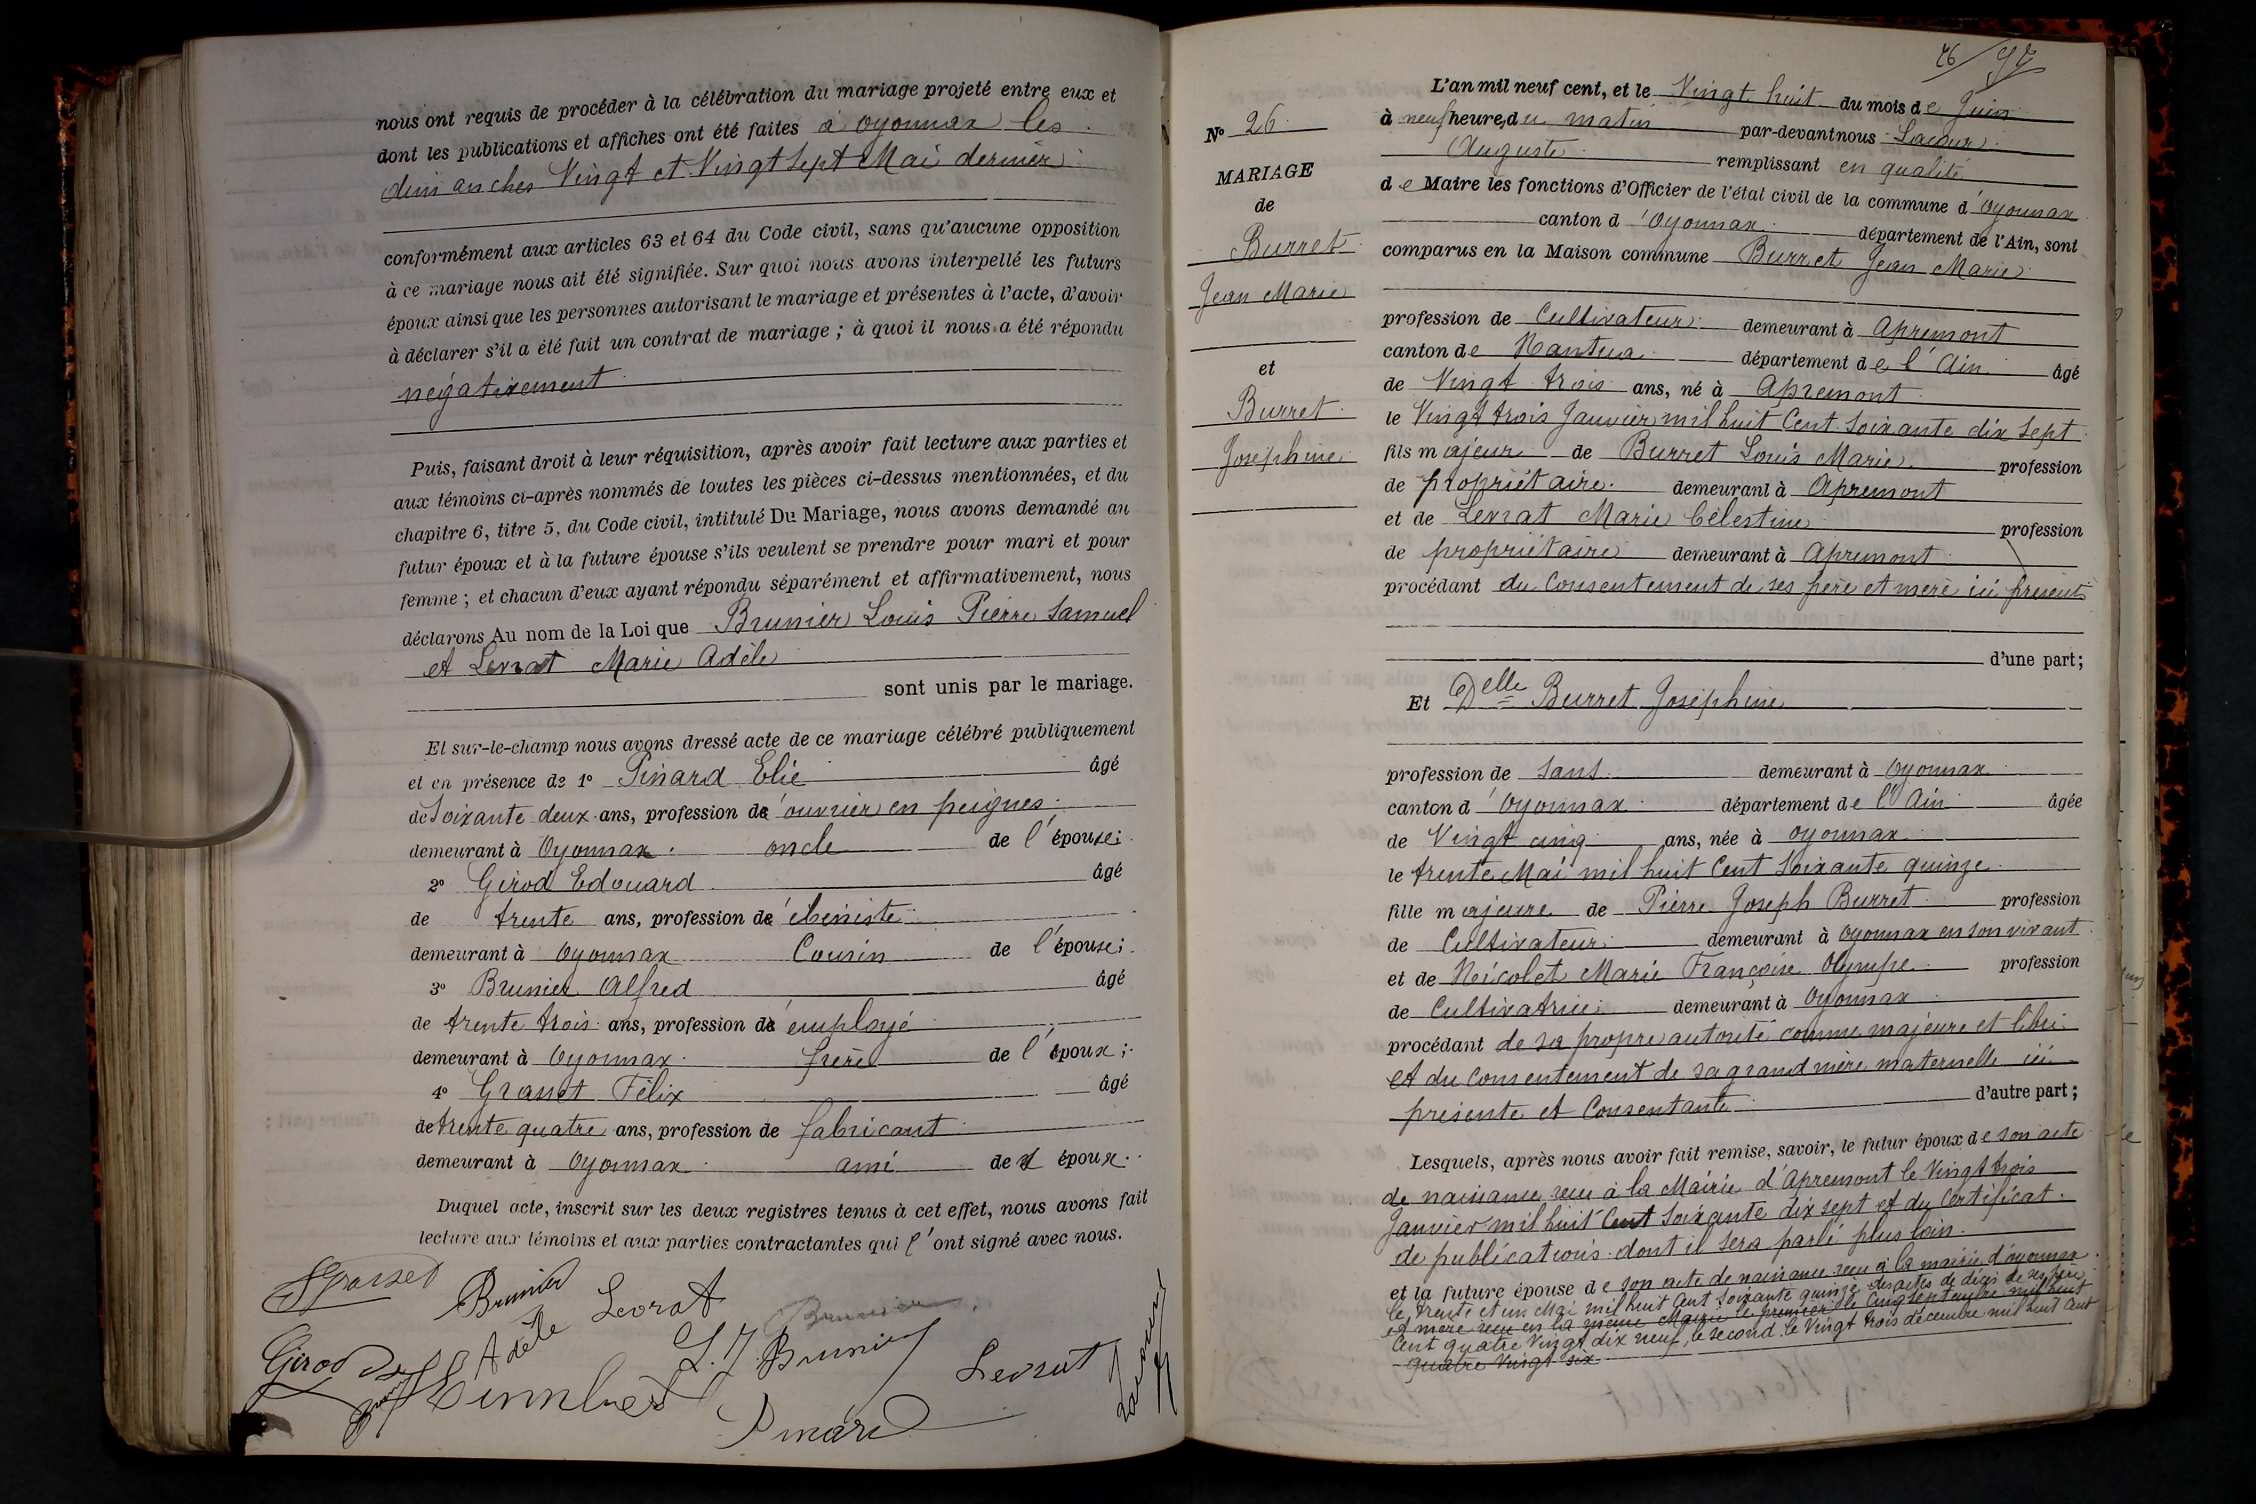 nous ont requis de procéder à la célébration du mariage projeté entre eux et
dont les publications et affiches ont été faites à Oyonnax les
dimanches Vingt et Vingt Sept Mai dernier
conformément aux articles 63 et 64 du Code civil, sans qu'aucune opposition
à ce mariage nous ait été signifiée. Sur quoi nous avons interpellé les futurs
époux ainsi que les personnes autorisant le mariage et présentes à l'acte, d'avoir
à déclarer s'il a été fait un contrat de mariage ; à quoi il nous a été répondu
négativement
Puis, faisant droit à leur réquisition, après avoir fait lecture aux parties et
aux témoins ci-après nommés de toutes les pièces ci-dessus mentionnées, et du
chapitre 6, titre 5, du Code civil, intitulé Du Mariage, nous avons demandé au
futur époux et à la future épouse s'ils veulent se prendre pour mari et pour
femme ; et chacun d'eux ayant répondu séparément et affirmativement, nous
déclarons Au nom de la Loi que Brunier Louis Pierre Samuel
et Levrat Marie Adèle
sont unis par le mariage.
Et sur-le-champ nous avons dressé acte de ce mariage célébré publiquement
et en présence de 1° Pinard Elie âgé
de Soixante deux ans, profession d'ouvrier en peignes
demeurant à Oyonnax oncle de l'épouse;
2° Girod Edouard âgé
de trente ans, profession d'ébéniste
demeurant à Oyonnax Cousin de l'épouse;
3° Brunier Alfred âgé
de trente trois ans, profession d'employé
demeurant à Oyonnax frère de l'époux;
4° Grasset Félix âgé
de trente quatre ans, profession de fabricant
demeurant à Oyonnax ami de l'époux.
Duquel acte, inscrit sur les deux registres tenus à cet effet, nous avons fait
lecture aux témoins et aux parties contractantes qui l'ont signé avec nous.
Grasset
Brunier Adèle
Levrat
Brunier
Girod
L. Brunier
Levrat
Pinard
Lacour
26 / 97
N° 26
MARIAGE
de
Burret
Jean Marie
et
Burret
Joséphine
L'an mil neuf cent, et le Vingt huit du mois de Juin
à neuf heure, du matin par-devant nous Lacour
Auguste remplissant en qualité
de Maire les fonctions d'Officier de l'état civil de la commune d'Oyonnax
canton d'Oyonnax département de l'Ain, sont
comparus en la Maison commune Burret Jean Marie
profession de Cultivateur demeurant à Apremont
canton de Nantua département de l'Ain âgé
de Vingt trois ans, né à Apremont
le Vingt trois Janvier mil huit Cent Soixante dix Sept
fils majeur de Burret Louis Marie profession
de propriétaire demeurant à Apremont
et de Levrat Marie Célestine profession
de propriétaire demeurant à Apremont
procédant du Consentement de ses père et mère ici présents
d'une part;
Et Delle Burret Joséphine
profession de sans demeurant à Oyonnax
canton d'Oyonnax département de l'Ain âgée
de Vingt cinq ans, née à Oyonnax
le trente Mai mil huit Cent Soixante quinze
fille majeure de Pierre Joseph Burret profession
de Cultivateur demeurant à Oyonnax en son vivant
et de Nicolet Marie Françoise Olympe profession
de Cultivatrice demeurant à Oyonnax
procédant de sa propre autorité comme majeure et libre
et du Consentement de sa grand mère maternelle ici
présente et Consentante d'autre part;
Lesquels, après nous avoir fait remise, savoir, le futur époux de son acte
de naissance reçu à la Mairie d'Apremont le Vingt trois
Janvier mil huit Cent Soixante dix sept et du Certificat
de publications dont il sera parlé plus loin
et la future épouse de son acte de naissance reçu à la mairie d'oyonnax
le trente et un Mai mil huit Cent Soixante quinze des actes de décès de ses père
et mère reçu en la même Mairie le premier le Cinq Septembre mil huit
Cent quatre Vingt dix neuf, le second le Vingt trois décembre mil huit Cent
quatre Vingt six